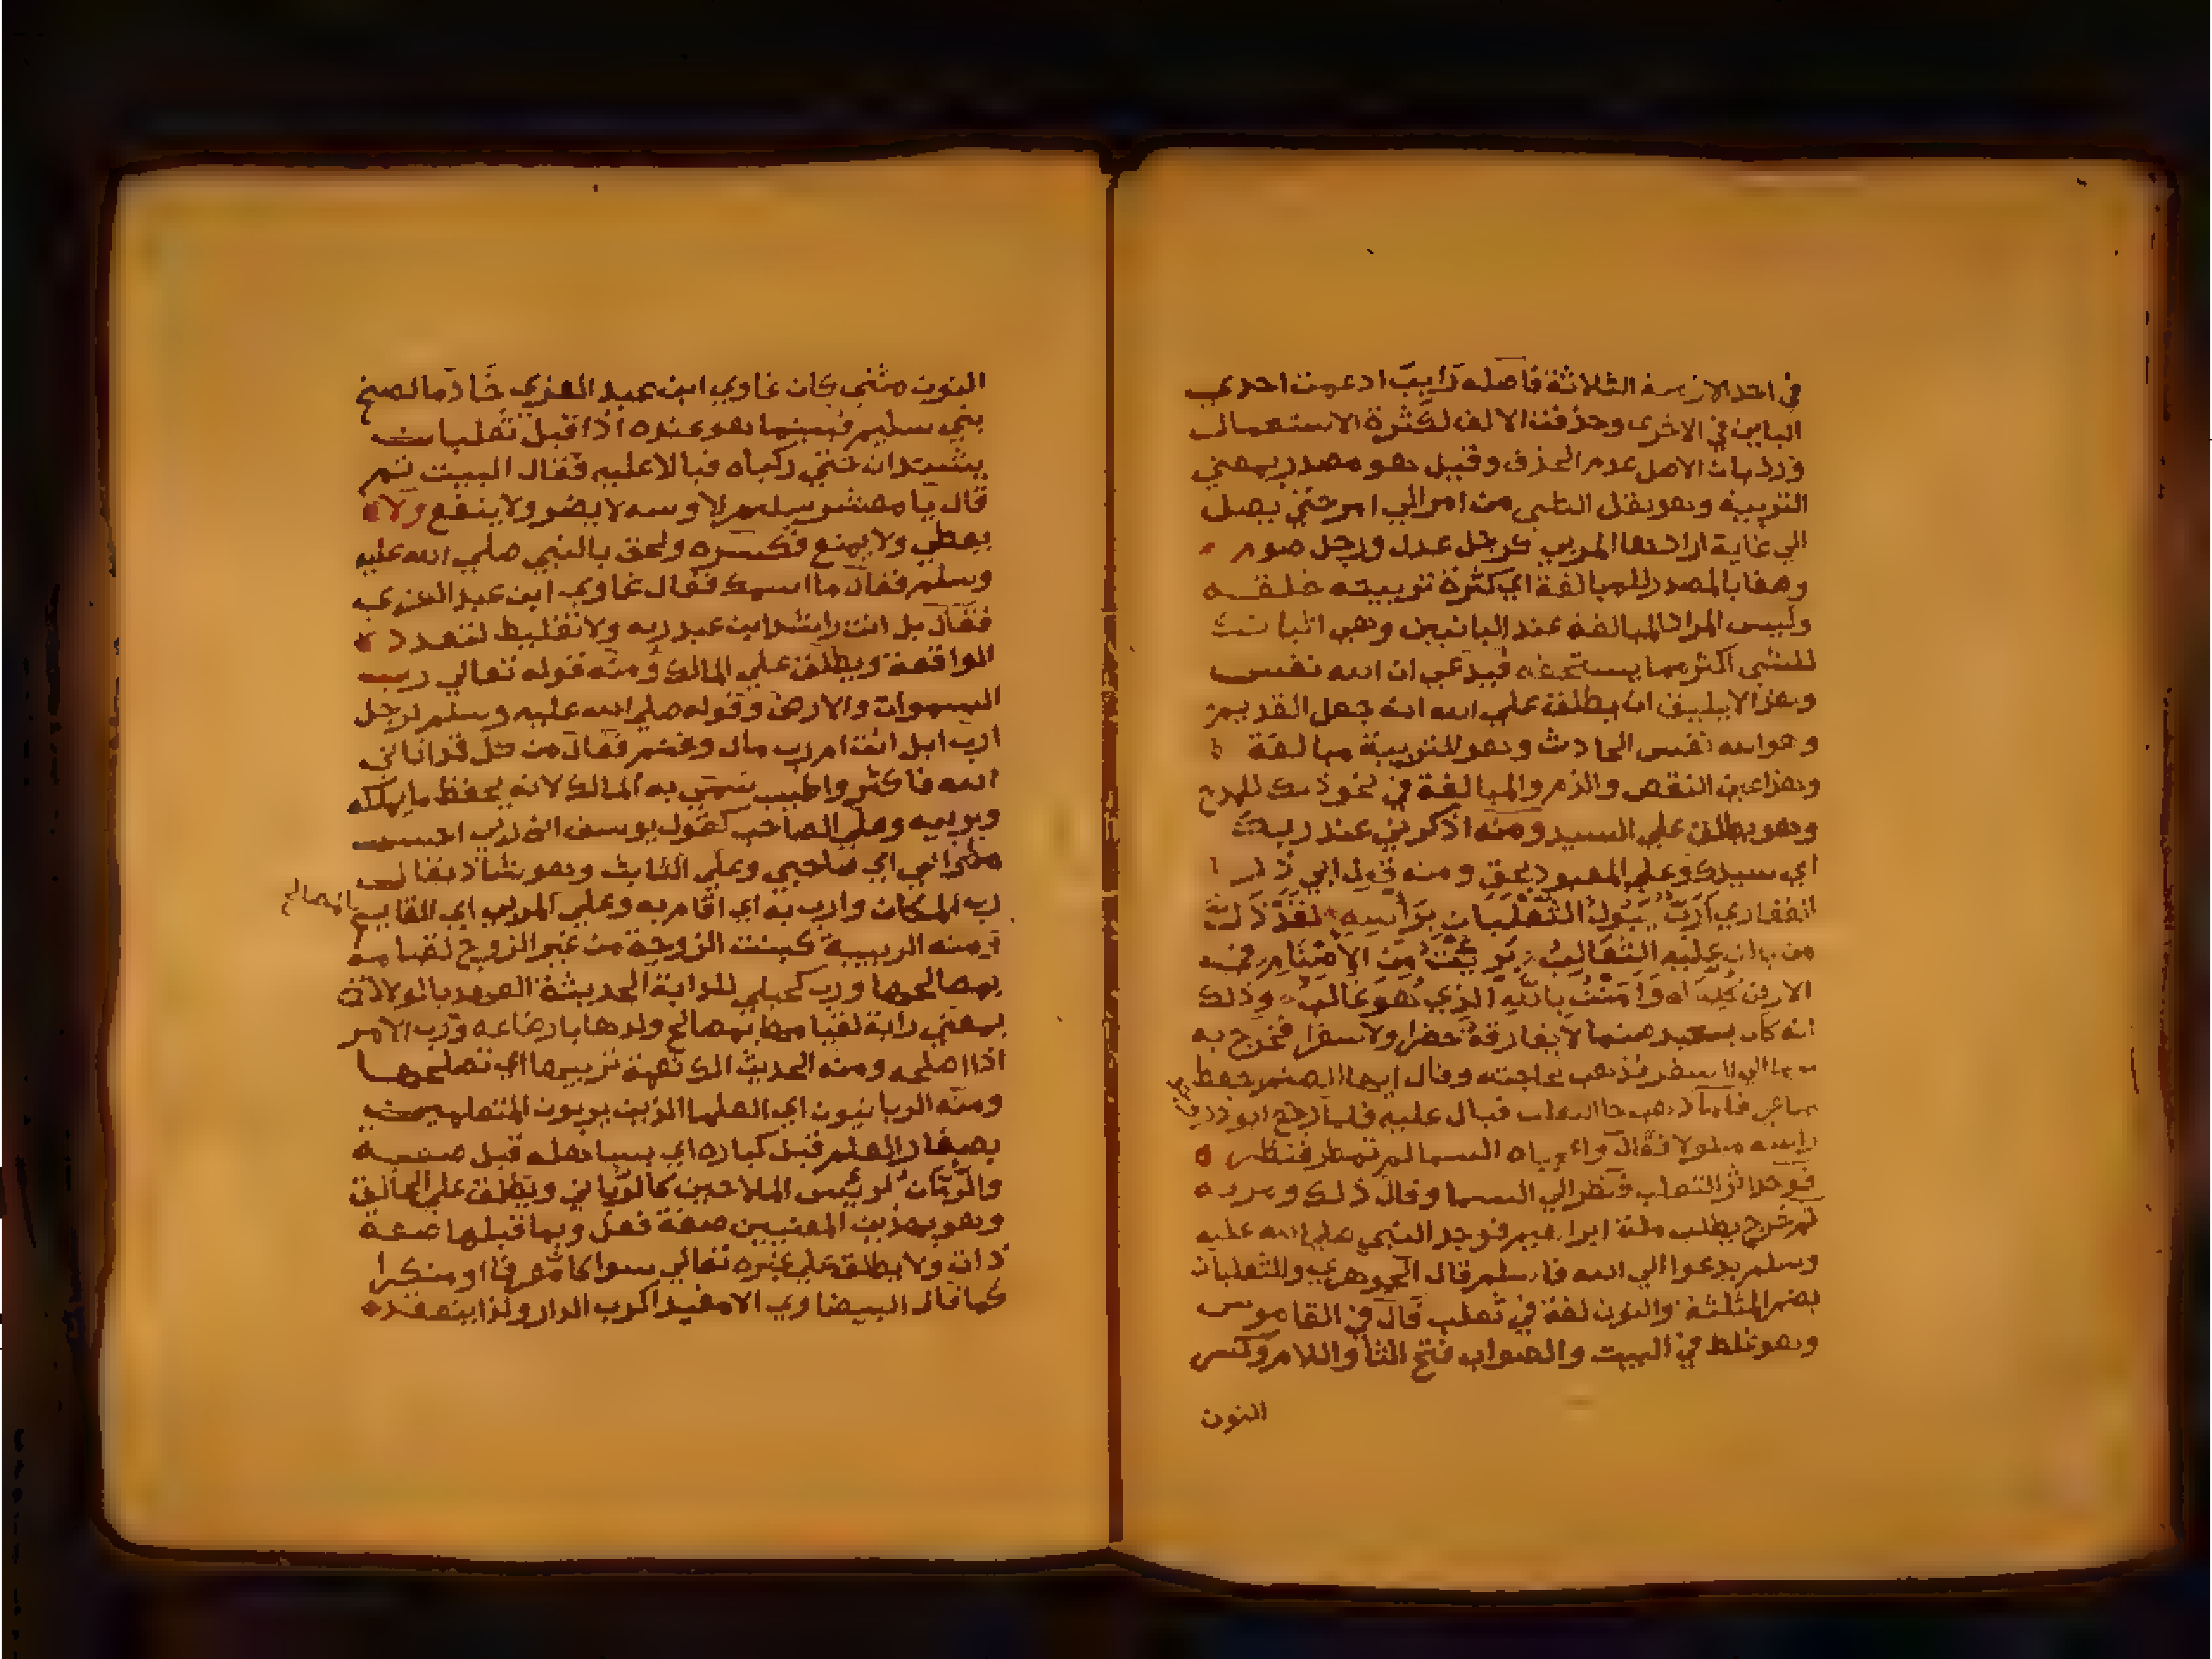 في احد الازمنة الثلاثة فاصله رابب ادغمت احدي
البابين في الاخرى وحذفت الالف لكثرة الاستعمال
ورد بان الاصل عدم الحذف وقيل هو مصدر بمعني
التربية وهو نقل الشي من امر الي امر حتي يصل
الي غاية ارادها المربي كرجل عدل ورجل صوم
وصفا بالمصدر للمبالغة اي كثرة تربيته خلقه
وليس المراد المبالغة عند البانيين وهي اثباتك
للشي اكثر مما يستحقه فيدعي ان الله نفس
وهذا لا يليق ان يطلق علي الله انه جعل القديم
وهو الله نفس الحادث وهو للتربية مبالغة
وهذا عين النقص والذم والمبالغة في نحو ذلك للمدح
وهو يطلق علي السيد ومنه اذكرني عند ربك
اي سيدك وعلي المعبود بحق ومنه قول ابي ذر
الغفاري ارب يبول الثعلبان براسه لقد ذل
من بال عليه الثعالب برئت من الاصنام في
الارض كلها وامنت بالله الذي هو غالب وذلك
انه كان يعبد صنما لا يفارقه حضرا ولا سفرا فخرج به
الي السفر فذهب لحاجته وقال ايها الصنم احفظ
متاعي فلما ذهب جا الثعلب فبال عليه فلما رجع ابوذر
راسه مبلولا فقال واعجباه السما لم تمطر فنظر
فوجد اثر الثعلب فنظر الي السما وقال ذلك
ثم خرج يطلب ملة ابراهيم فوجد النبي صلي الله عليه
وسلم يدعوا الي الله فاسلم قال الجوهري والثعلبان
بضم المثلثة والنون لغة في ثعلب قال في القاموس
وهو غلط في البيت والصواب فتح الثا واللام وكسر
النون
النون مثني كان غاوي ابن عبد العزي خادما لصنم
بني سليم فبينما هو عنده اذ اقبل ثعلبان
يشتدان حتي ركباه فبالا عليه فقال البيت ثم
قال يا معشر سليم لا وسه لا يضر ولا ينفع ولا
يعطي ولا يمنع فكسره ولحق بالنبي صلي الله عليه
وسلم فقال ما اسمك فقال غاوي ابن عبد العزي
فقال بل انت راشد ابن عبد ربه ولا تغليط لتعدد
الواقعة ويطلق علي المالك ومنه قوله تعالي رب
السموات والارض وقوله صلي الله عليه وسلم لرجل
ارب ابل انت ام رب مال وغنم فقال من كل قد اتاني
الله فاكثر واطيب سمي به المالك لانه يحفظ ما يملكه
ويربيه وعلي الصاحب كقول يوسف انه ربي احسن
مثواي اي صاحبي وعلي الثابت وهو شاذ يقال
رب المكان وارب به اي اقام به وعلي المربي اي القايم
بالمصالح
ومنه الربيبة كبنت الزوجة من غير الزوج لقيامه
بمصالحها ورب كحبلي للدابة الحديثة العهد بالولادة
بمعني رابة لقيامها بمصالح ولدها بارضاعه ورب الامر
اذا اصلحه ومنه الحديث الك نعمة تربيها اي تصلحها
ومنه الربانيون اي العلما الذين يربون المتعلمين
بصغار العلم قبل كباره اي بمسائله قبل صعبه
والربان لرئيس الملاحين كالرباني ويطلق علي الخالق
وهو بهذين المعنيين صفة فعل وبما قبلها صفة
ذات ولا يطلق علي غيره تعالي سوا كان معرفا او منكرا
كما قال البيضاوي الا مقيدا كرب الدار ولذا ينعقد